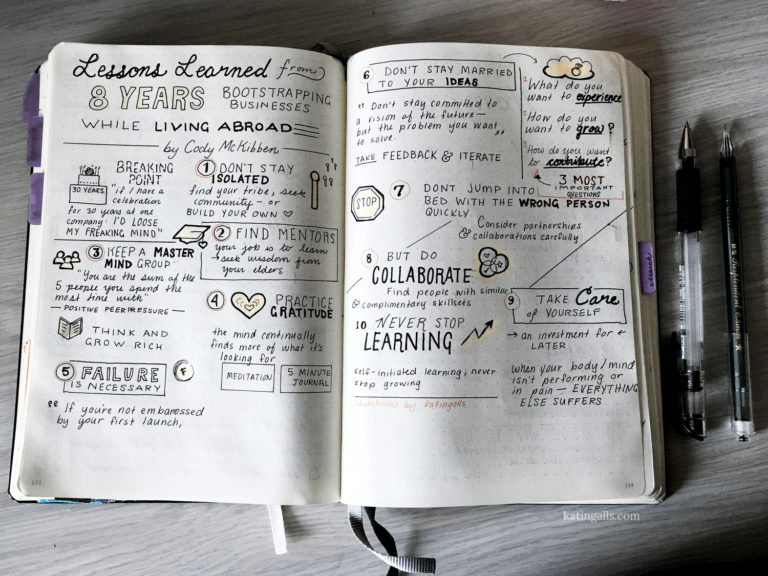 Lessons Learned from
8 YEARS BOOTSTRAPPING
BUSINESSES
WHILE LIVING ABROAD
by Cody McKibben
BREAKING
POINT
30 YEARS
"if I have a
celebration
for 30 years at one
company: I'D LOOSE
MY FREAKING MIND"
1 DON'T STAY
ISOLATED
find your tribe, seek
community - or
BUILD YOUR OWN
2 FIND MENTORS
your job is to learn
→ seek wisdom from
your elders
3 KEEP A MASTER
MIND GROUP
"You are the sum of the
5 people you spend the
most time with"
- POSITIVE PEER PRESSURE -
THINK AND
GROW RICH
4 PRACTICE
GRATITUDE
the mind continually
finds more of what it's
looking for
MEDITATION
5 MINUTE
JOURNAL
5 FAILURE
IS NECESSARY
"If you're not embarassed
by your first launch,
6 DON'T STAY MARRIED
TO YOUR IDEAS
"Don't stay committed to
a vision of the future—
but the problem you want
to solve."
TAKE FEEDBACK & ITERATE
1 What do you
want to experience
2 How do you
want to grow?
3 How do you want
to contribute?
3 MOST
IMPORTANT
QUESTIONS
STOP
7 DONT JUMP INTO
BED WITH THE WRONG PERSON
QUICKLY
Consider partnerships
& collaborations carefully
8 BUT DO
COLLABORATE
Find people with similar
& complimentary skillsets
9 TAKE Care
of YOURSELF
→ an investment for ←
LATER
when your body/mind
isn't performing or
in pain — EVERYTHING
ELSE SUFFERS
10 NEVER STOP
LEARNING
self-initiated learning; never
stop growing
sketchnotes by katingalls
katingalls.com